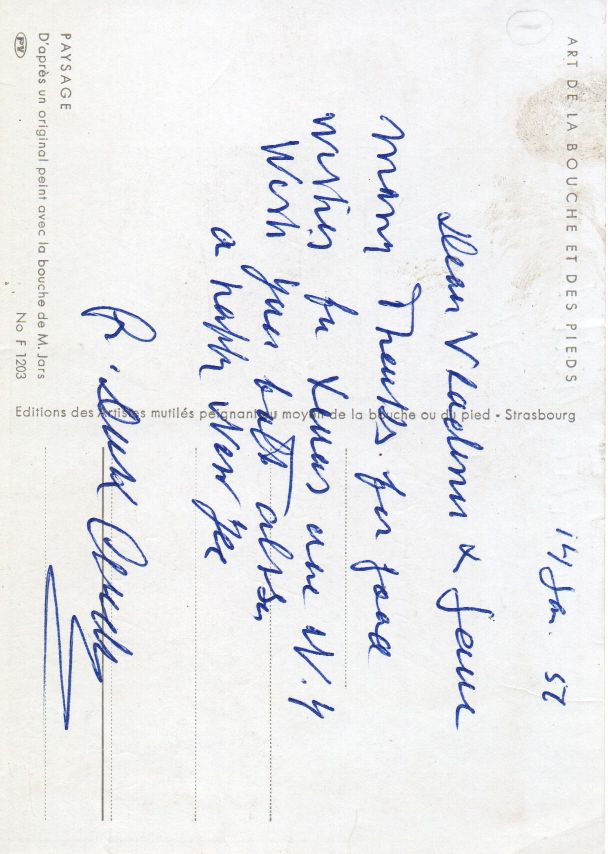 ART DE LA BOUCHE ET DES PIEDS
14 Jan. 57
Dear Vladimir & Gene
Many Thanks for good
wishes for Xmas and N.Y
Wish you both also
a happy New Yea
R.
PAYSAGE
D'après un original peint avec la bouche de M. Jars
No F 1203
PV
Editions des Artistes mutilés peignant au moyen de la bouche ou du pied - Strasbourg
1